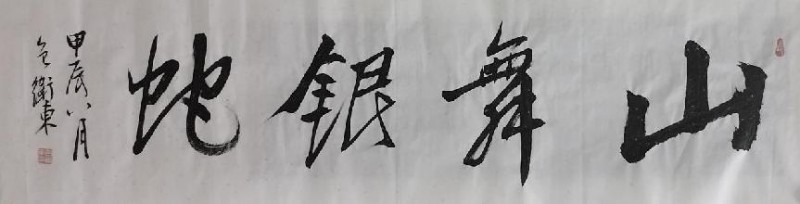 山舞銀蛇
甲辰八月
衛東